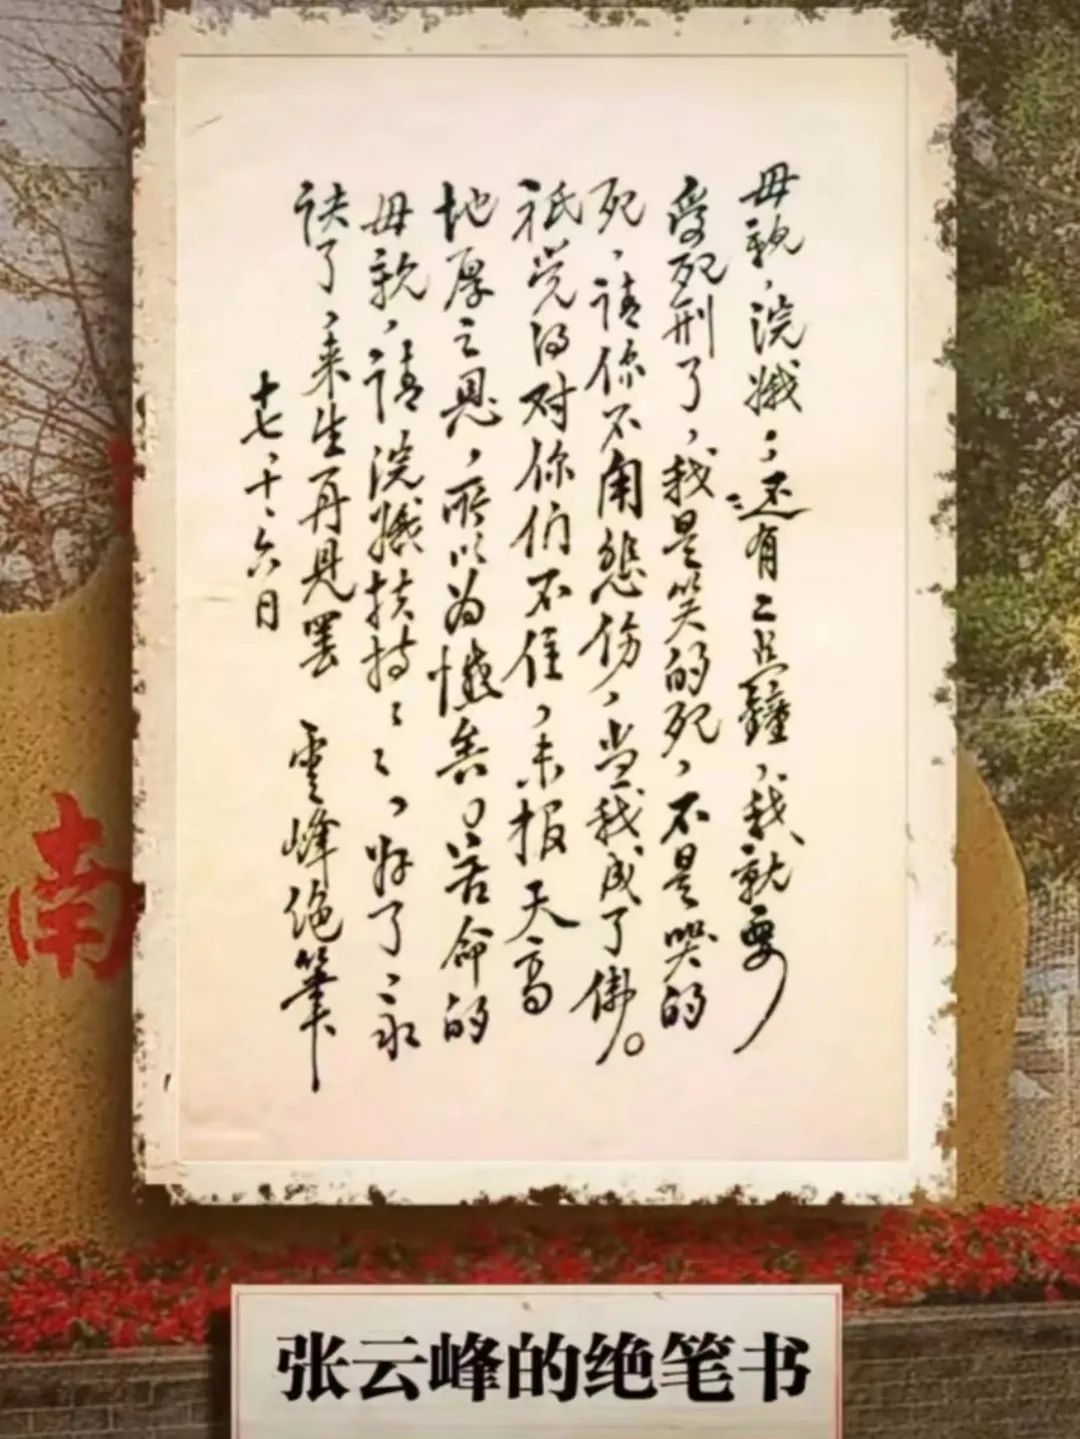 母親，浣娥，還有二點鐘，我就要
受死刑了，我是笑的死，不是哭的
死，請你不用悲傷，当我成了佛。
祇觉得对你们不住，未报天高
地厚之恩，所以为憾矣。苦命的
母親，請浣娥扶持々々，好了，永
訣了，来生再見罢 雲峰绝筆
十七、十、六日
南
张云峰的绝笔书